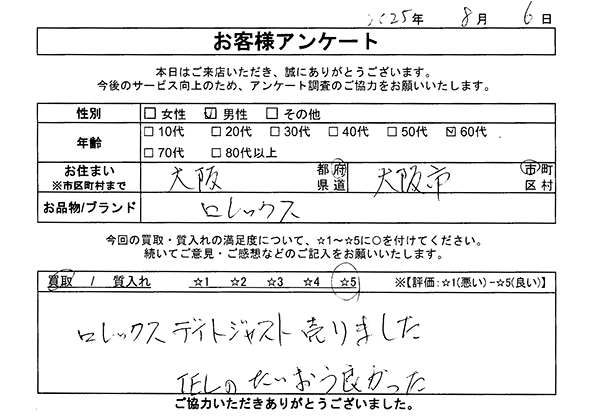 2025年 8月 6日
お客様アンケート
本日はご来店いただき、誠にありがとうございます。
今後のサービス向上のため、アンケート調査のご協力をお願いいたします。
性別 □女性 ☑男性 □その他
年齢 □10代 □20代 □30代 □40代 □50代 ☑60代
□70代 □80代以上
お住まい 大阪 都府 大阪市 市町
※市区町村まで 県道 区村
お品物/ブランド ロレックス
今回の買取・質入れの満足度について、☆1〜☆5に○を付けてください。
続いてご意見・ご感想などのご記入をお願いいたします。
買取 / 質入れ ☆1 ☆2 ☆3 ☆4 ☆5 ※【評価:☆1(悪い)-☆5(良い)】
ロレックス デイトジャスト 売りました
TELの たいおう良かった
ご協力いただきありがとうございました。